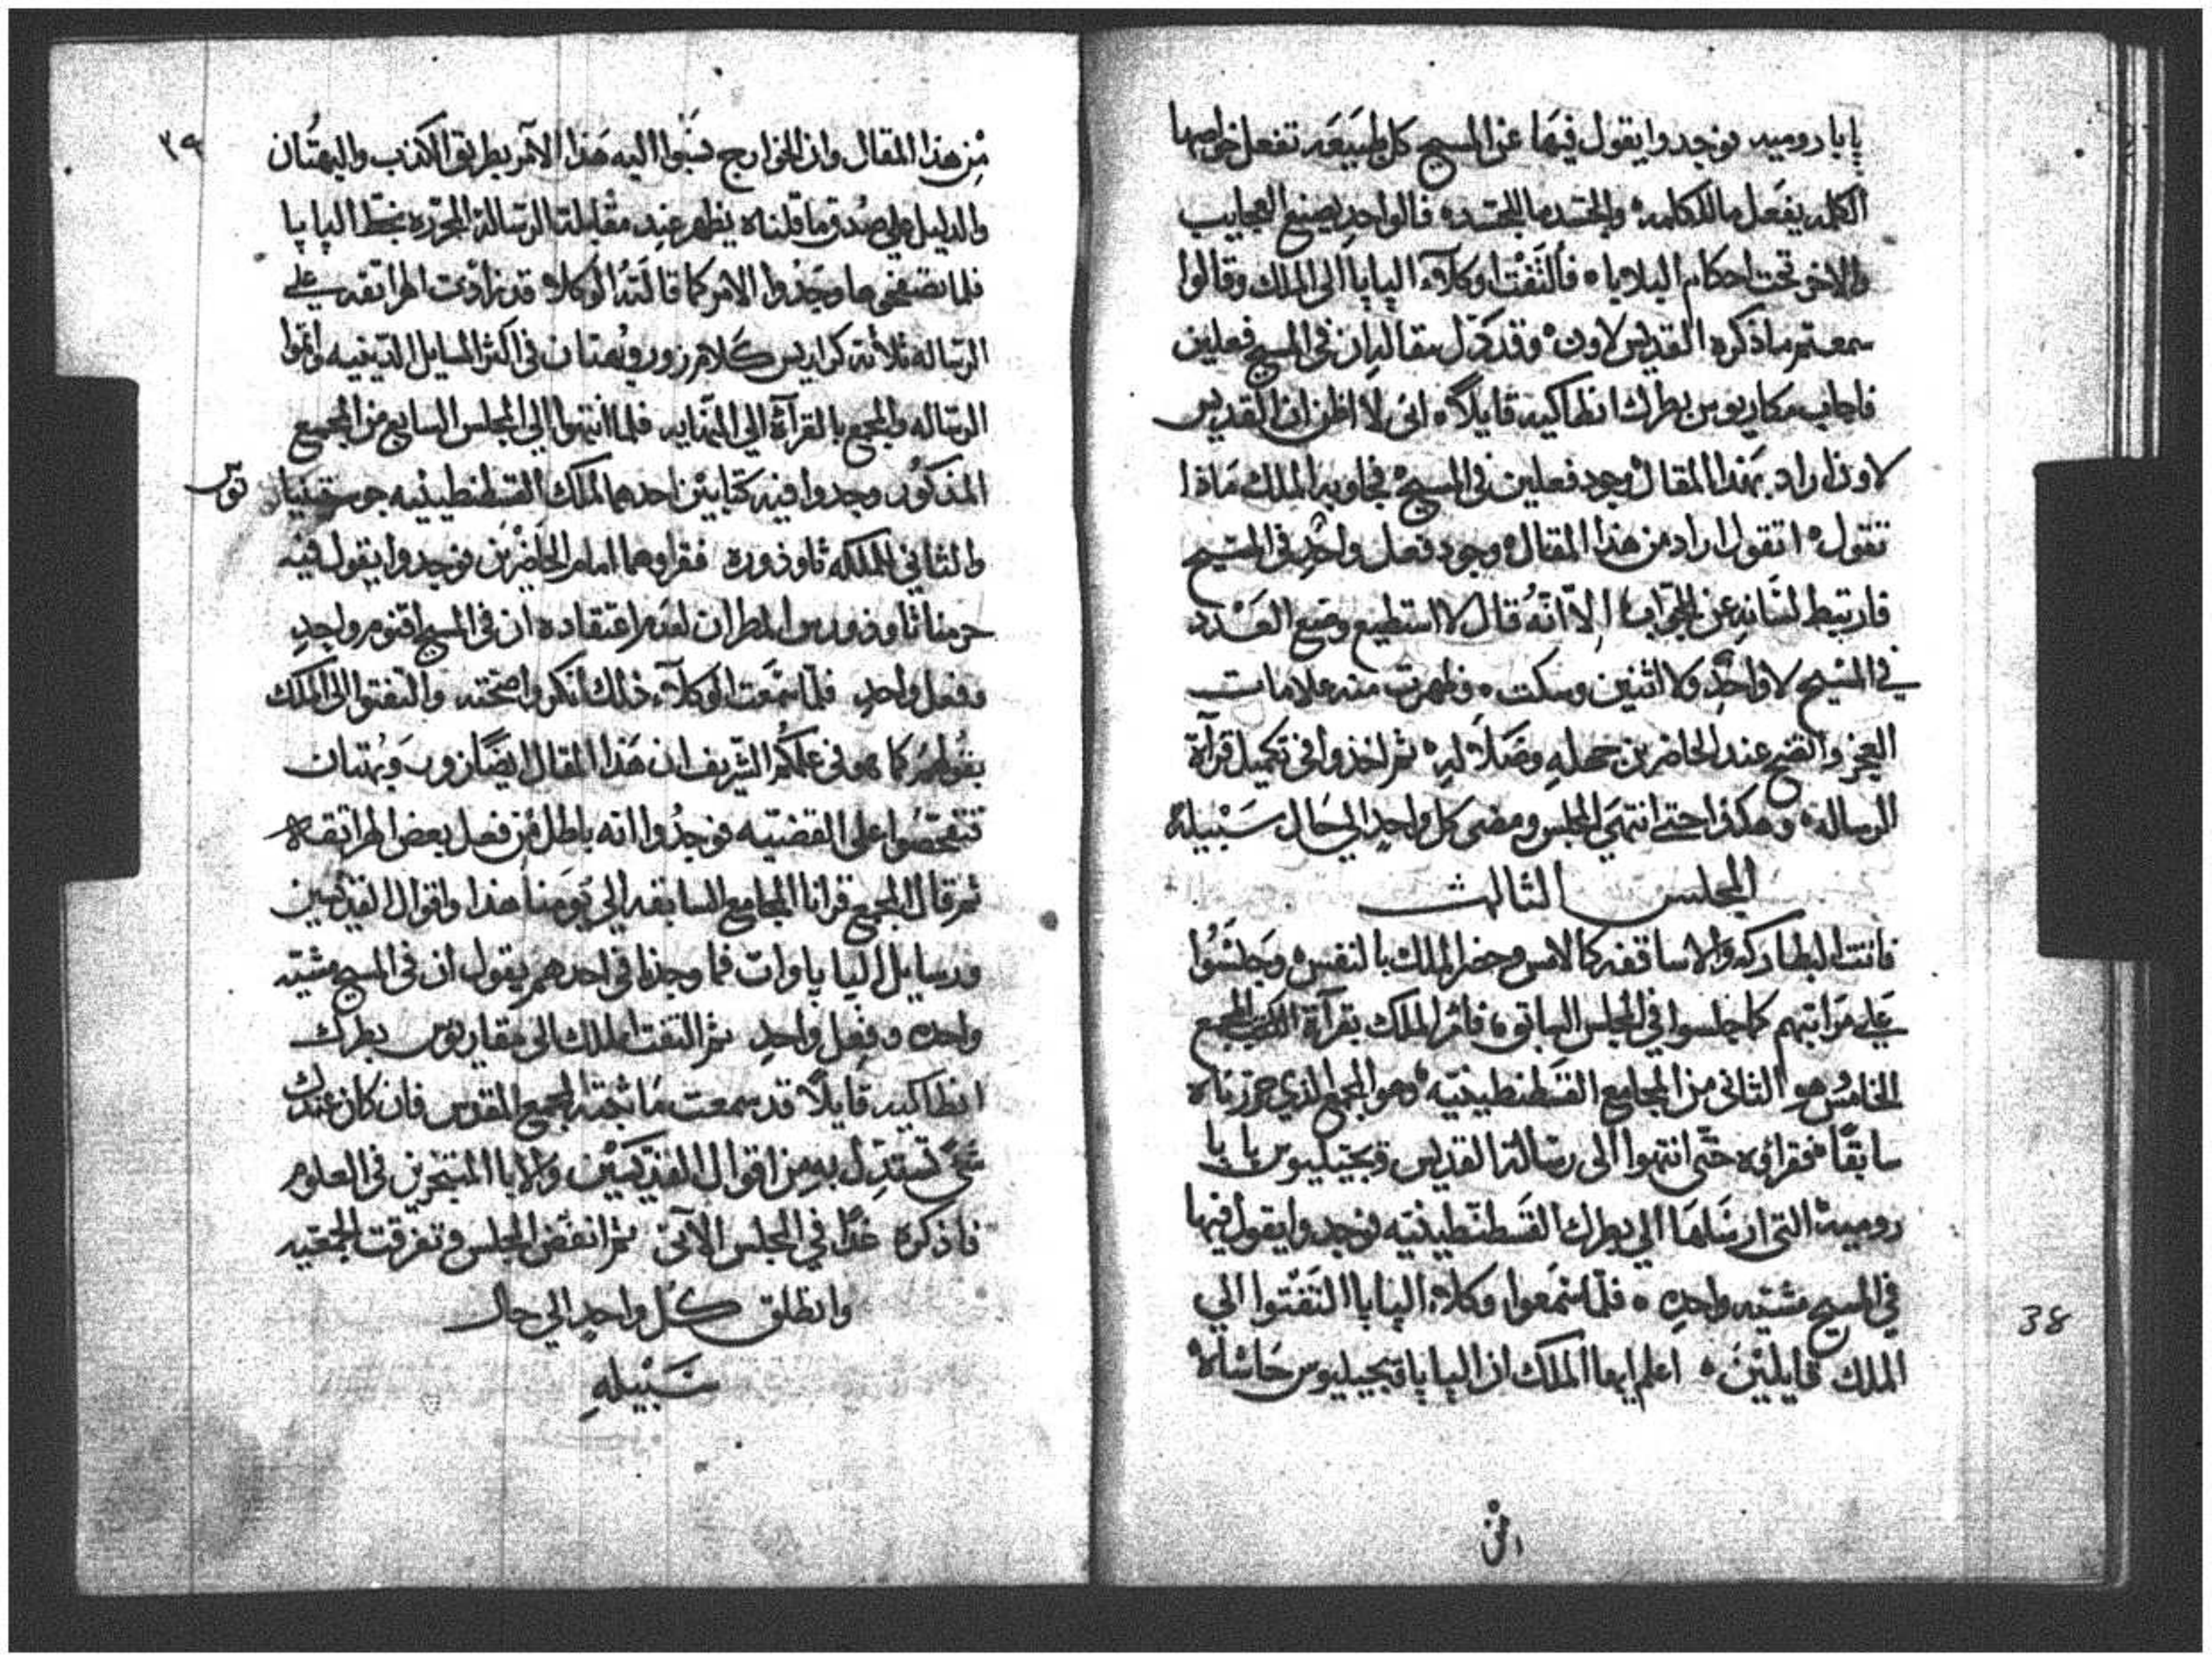 پاپا روميه فوجدوا يقول فيها عن المسيح كل طبيعه تفعل خواصها
الكلمه يفعل ما للكلمه والجسد ما للجسد فالواحد يصنع العجايب
والاخر تحت احكام البلايا فالتفتا وكلاء الپاپا الى الملك وقالوا
سمعتم ما ذكره القديس لاون وقد دل بمقاله ان في المسيح فعلين
فاجاب مكاريوس بطرك انطاكيه قايلاً اني لا اظن ان القديس
لاون اراد بهذا المقال وجود فعلين في المسيح فجاوبه الملك ماذا
تقول اتقول اراد من هذا المقال وجود فعل واحد في المسيح
فارتبط لسانه عن الجواب الا انه قال لا استطيع وضع العدد
في المسيح لا واحد ولا اثنين وسكت وظهرت منه علامات
العجز واتضح عند الحاضرين جهله وضلاله ثم اخذوا في تكميل قرآة
الرساله وهكذا حتى انتهى المجلس ومضى كل واحد الي حال سبيله
المجلس الثالث
فاتت البطاركه والاساقفه كالامس وحضر الملك بالنفس وجلسوا
علي مراتبهم كما جلسوا في المجلس السابق فامر الملك بقرآة المجمع
الخامس هو الثاني من المجامع القسطنطينيه وهو المجمع الذي حررناه
سابقاً فقراوه حتى انتهوا الى رسالة القديس ويجيليوس پاپا
روميه التي ارسلها الي بطرك القسطنطينيه فوجدوا يقول فيها
في المسيح مشيه واحده فلما سمعوا وكلاء الپاپا التفتوا الي
الملك قايلين اعلم ايها الملك ان الپاپا ويجيليوس حاشاه
من هذا المقال وان الخوارج نسبوا اليه هذا الامر بطريق الكذب والبهتان
والدليل علي صدق ما قلناه يظهر عند مقابلة الرساله المحرره بخط الپاپا
فلما تصفحوها وجدوا الامر كما قالته الوكلا قد زادت الهراتقه علي
الرساله ثلاثة كراريس كلام زور وبهتان في اكثر المسايل الدينيه واتموا
الرساله والمجمع بالقرآة الي النهايه فلما انتهوا الي المجلس السابع من المجمع
المذكور وجدوا فيه كتابين احدهما لملك القسطنطينيه جوستينيانوس
والثاني للملكه ثاوذوره فقراوهما امام الحاضرين فوجدوا يقول فيه
حرمنا ثاوذوروس المطران لعدم اعتقاده ان في المسيح اقنوم واحد
وفعل واحد فلما سمعت الوكلاء ذلك انكروا صحته والتفتوا الى الملك
بقولهم كما هو في علمكم الشريف ان هذا المقال ايضاً زور وبهتان
فتفحصوا على القضيه فوجدوا انه باطل من فعل بعض الهراتقه
ثم قال المجمع قرانا المجامع السابقه الي يومنا هذا واقوال القديسين
ورسايل الپاپاوات فما وجدنا في احدهم يقول ان في المسيح مشيه
واحده وفعل واحد ثم التفت الملك الى مقاريوس بطرك
انطاكيه قايلاً قد سمعت ما اثبته المجمع المقدس فان كان عندك
شي تستدل به من اقوال القديسين والابا المتبحرين في العلوم
فاذكره غداً في المجلس الآتي ثم انفض المجلس وتفرقت الجمعيه
وانطلق كل واحد الي حال
سبيله
٣٩
38